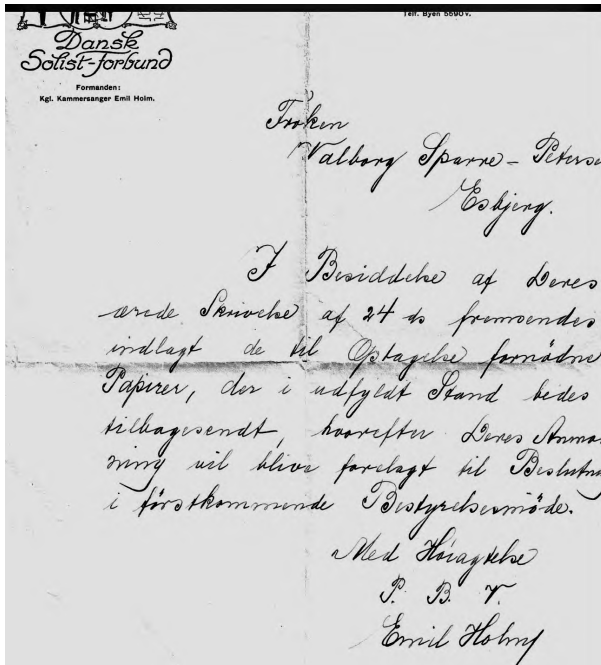 Telf. Byen 5590 v.
Dansk
Solist-forbund
Formanden:
Kgl. Kammersanger Emil Holm.
Frøken
Valborg Sparre-Peterse
Esbjerg.
I Besiddelse af Deres
ærede Skrivelse af 24 ds fremsendes
indlagt de til Optagelse fornødne
Papirer, der i udfyldt Stand bedes
tilbagesendt, hvorefter Deres Anmo
ning vil blive forelagt til Beslutni
i förstkommende Bestyrelsesmöde.
Med Höiagtelse
P. B. V.
Emil Holm